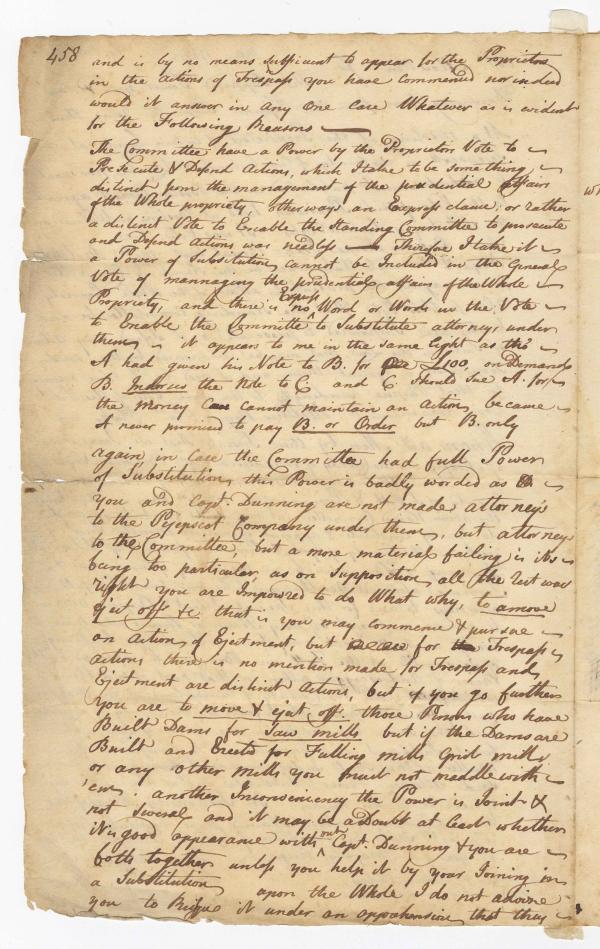 458
and is by no means Sufficient to appear for the Proprietors
in the Actions of Trespass you have Commenced nor indeed
would it answer in any One Case Whatever as is evident
for the Following Reasons —
The Committee have a Power by the Proprietors Vote to
Prosecute & Defend Actions, which I take to be something
distinct from the management of the prudential affairs
of the Whole propriety, otherways an Express clause or rather
a distinct Vote to Enable the Standing Committee to prosecute
and Defend Actions was needless — Therefore I take it
a Power of Substitution cannot be Included in the General
Vote of mannaging the prudential affairs of the Whole
Propriety, and there is no Express Word or Words in the Vote
to Enable the Committee to Substitute attorneys under
them, it appears to me in the same light as tho'
A had given his Note to B. for £100, on Demand
B. Indorces the Note to C and C. Should Sue A. for
the Money C cannot maintain an Action, because
A never promised to pay B. or Order but B. only
again in Case the Committee had full Power
of Substitution, this Power is badly worded as
you and Capt. Dunning are not made attorneys
to the Pejepscot Company under them, but attorneys
to the Committee, but a more material failing is its
being too particular, as on Supposition all the rest was
right you are Impowred to do What why, to amove
Eject off &c that is you may commence & pursue
an Action of Ejectment, but for Trespass
Actions there is no mention made for Trespass and
Ejectment are distinct Actions, but if you go further
you are to move & eject off. those Persons who have
Built Dams for Saw mills but if the Dams are
Built and Erected for Fulling mills Grist mills
or any other mills you must not meddle with
'em. another Inconveniency the Power is Joint &
not Several and it may be a Doubt at least whether
it is good appearance without Capt. Dunning & you are
both together unless you help it by your Joining in
a Substitution upon the Whole I do not advise
you to it under an apprehension that they